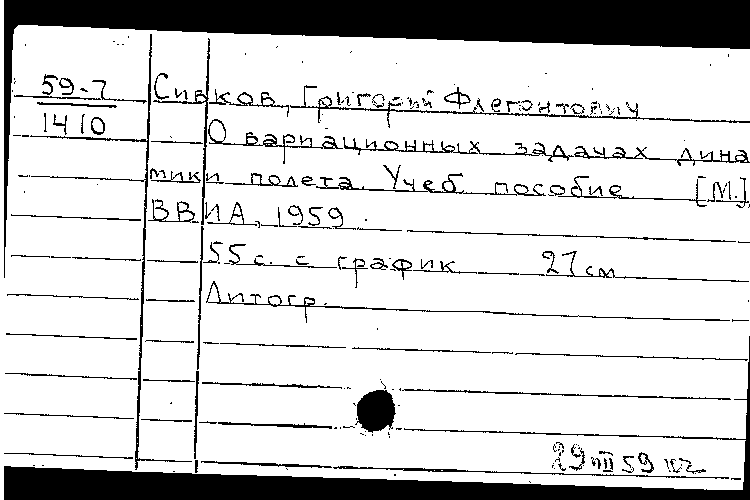 59-7
1410
Сивков, Григорий Флегонтович
О вариационных задачах дина
мики полета. Учеб. пособие. [М.],
ВВИА, 1959.
55 с. с график 27 см
Литогр.
29 VII 59